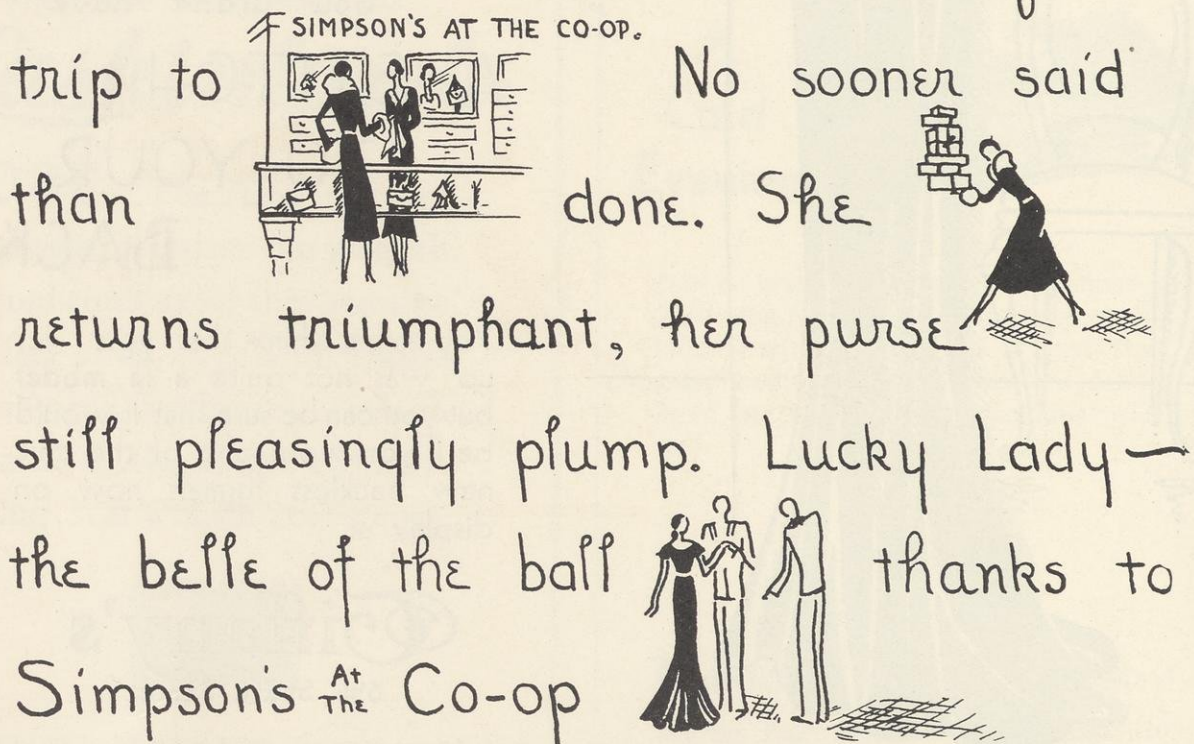 SIMPSON'S AT THE CO-OP.
trip to No sooner said
than done. She
returns triumphant, her purse
still pleasingly plump. Lucky Lady—
the belle of the ball thanks to
Simpson's At The Co-op